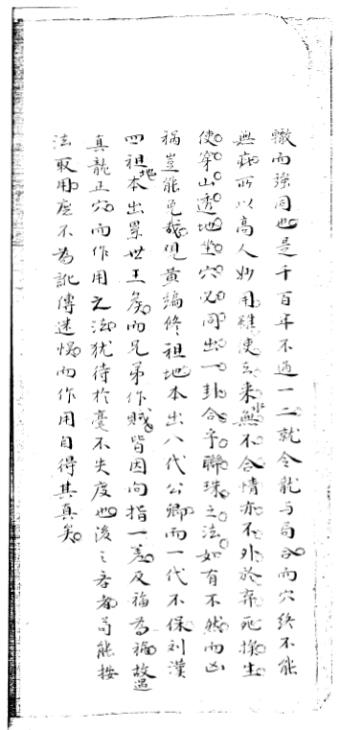 轍而強同也是千百年不過一二就令龍与局合而穴終不能
無疵所以高人妙用雖使去来無不合情亦不外於棄死挨生
使穿山透地坐穴必同出一卦合乎聯珠之法如有不然而凶
禍豈能免哉見黃縞修祖地本出八代公卿而一代不保刘漢
四祖地本出累世王矦而兄弟作賊皆因向指一差及福為禍故遇
真龍正穴而作用之法犹待於毫不失度也後之吞者苟能按
法取用庶不為訛傳迷悞而作用自得其真矣